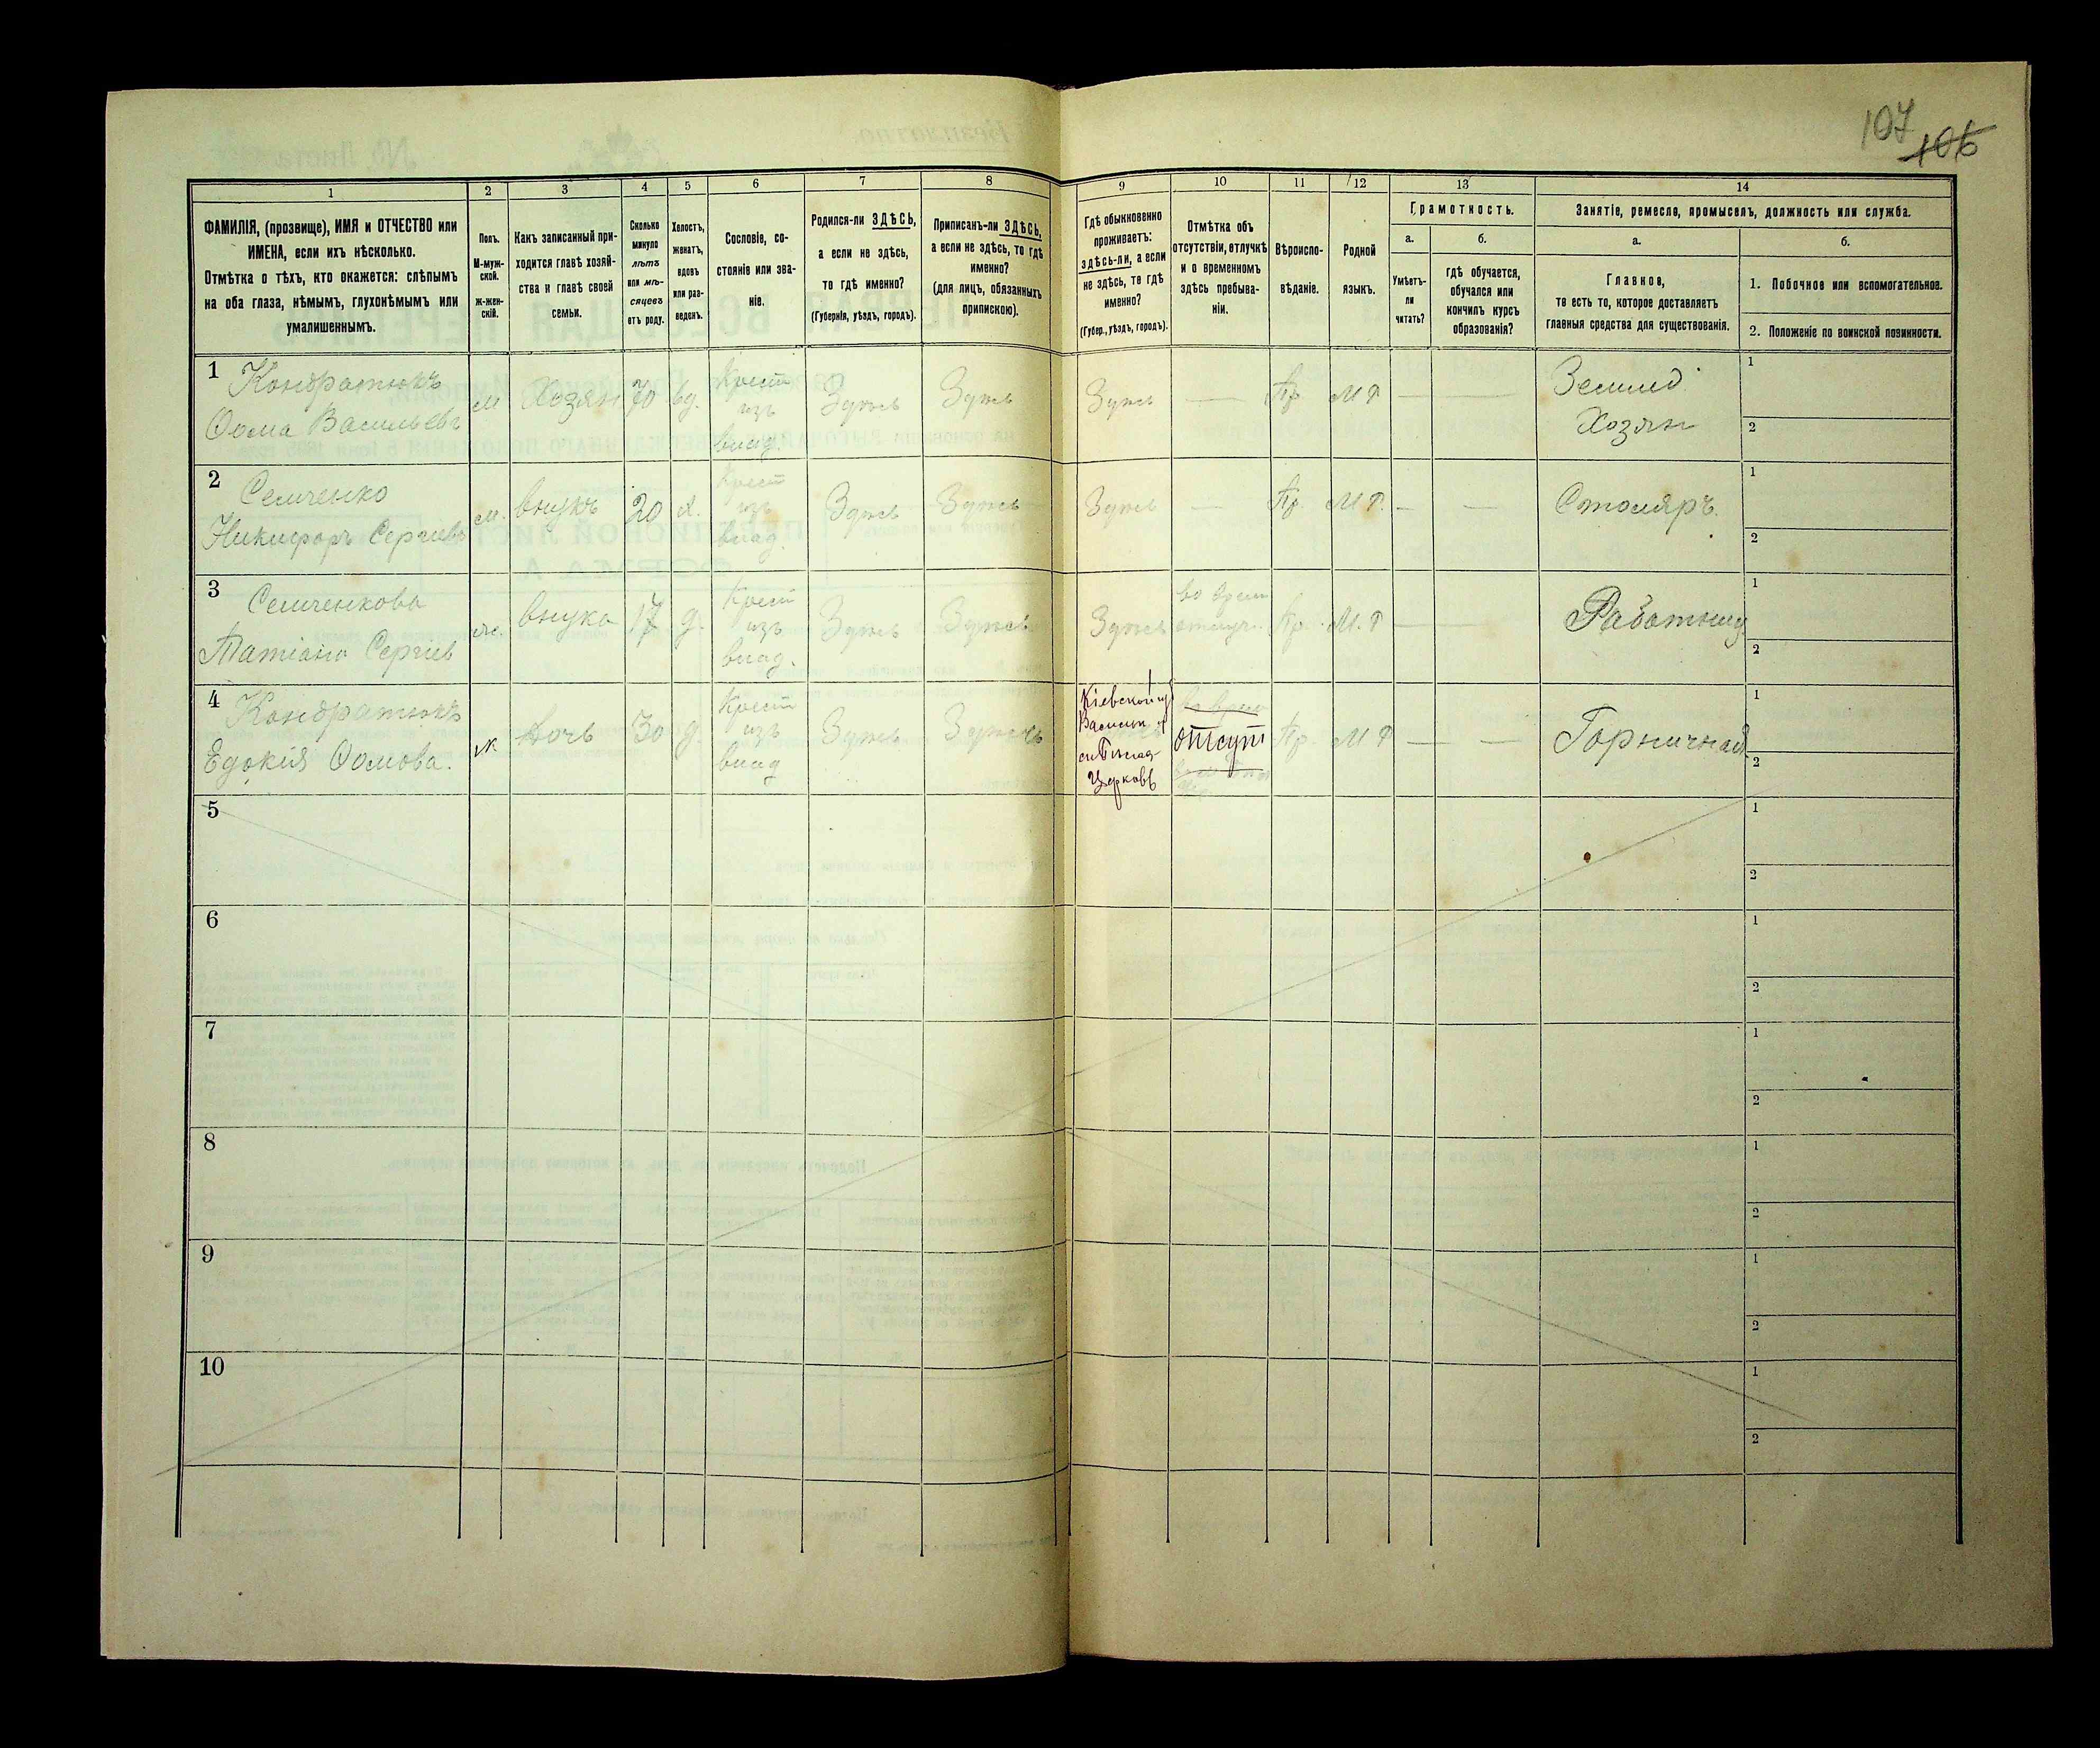 107
106
1
2
3
4
5
6
7
8
9
10
11
12
13
14
ФАМИЛІЯ, (прозвище), ИМЯ и ОТЧЕСТВО или
ИМЕНА, если ихъ нѣсколько.
Отмѣтка о тѣхъ, кто окажется: слѣпымъ
на оба глаза, нѣмымъ, глухонѣмымъ или
умалишеннымъ.
Полъ.
М-муж-
ской.
Ж-жен-
скій.
Какъ записанный при-
ходится главѣ хозяй-
ства и главѣ своей
семьи.
Сколько
минуло
лѣтъ
или мѣ-
сяцевъ
отъ роду.
Холостъ,
женатъ,
вдовъ
или раз-
веденъ.
Сословіе, со-
стояніе или зва-
ніе.
Родился-ли ЗДѢСЬ,
а если не здѣсь,
то гдѣ именно?
(Губернія, уѣздъ, городъ).
Приписанъ-ли ЗДѢСЬ,
а если не здѣсь, то гдѣ
именно?
(для лицъ, обязанныхъ
припискою).
Гдѣ обыкновенно
проживаетъ:
здѣсь-ли, а если
не здѣсь, то гдѣ
именно?
(Губер., уѣздъ, городъ).
Отмѣтка объ
отсутствіи, отлучкѣ
и о временномъ
здѣсь пребыва-
ніи.
Вѣроиспо-
вѣданіе.
Родной
языкъ.
Грамотность.
а.
б.
Умѣетъ-
ли
читать?
гдѣ обучается,
обучался или
кончилъ курсъ
образованія?
Занятіе, ремесло, промыселъ, должность или служба.
а.
б.
Главное,
то есть то, которое доставляетъ
главныя средства для существованія.
1. Побочное или вспомогательное.
2. Положеніе по воинской повинности.
1 Кондратюкъ
Ѳома Васильевъ
м
Хозяин
70
вд.
Крест
изъ
влад.
Здѣсь
Здѣсь
Здѣсь
—
Пр
М Р
—
—
Землед
Хозяин
1
2
2 Семченко
Никифоръ Сергиевъ
м.
внукъ
20
х.
Крест
изъ
влад.
Здѣсь
Здѣсь
Здѣсь
—
Пр.
М Р.
—
—
Столяръ.
1
2
3 Семченкова
Татіана Сергиев
ж.
внука
17
д.
Крест
изъ
влад.
Здѣсь
Здѣсь
Здѣсь
во врем
отлуч.
Пр.
М. Р
—
Работниц
1
2
4 Кондратюкъ
Едокія Ѳомова.
ж
дочь
30
д.
Крест
изъ
влад
Здѣсь
Здѣсь
Кіевской г
Васильк у
Бѣлая-
Церковь
отсут
Пр.
М Р
—
—
Горничная
1
2
5
1
2
6
1
2
7
1
2
8
1
2
9
1
2
10
1
2